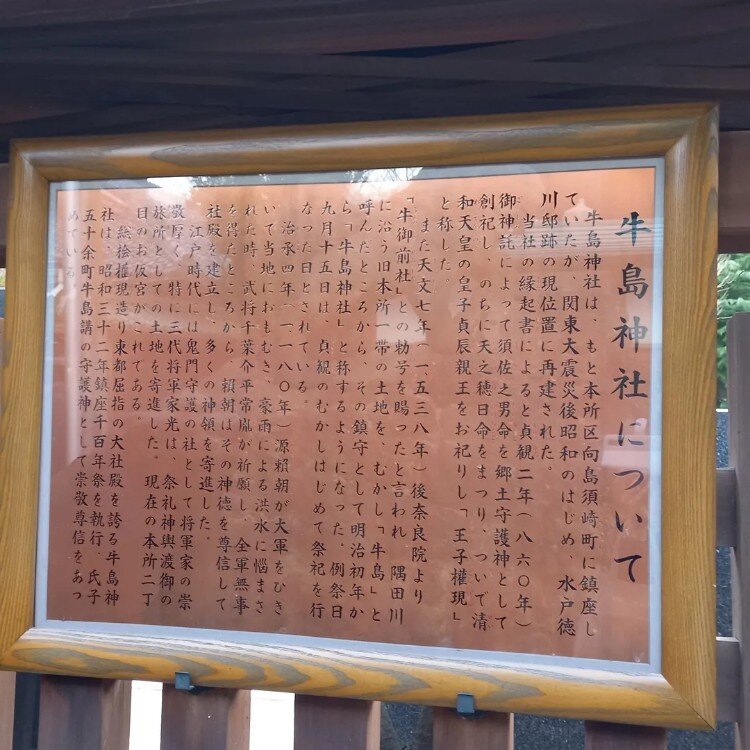 牛島神社について
牛島神社は、もと本所区向島須崎町に鎮座し
ていたが、関東大震災後昭和のはじめ、水戸徳
川邸跡の現位置に再建された。
当社の縁起書によると貞観二年(八六〇年)
御神託によって須佐之男命を郷土守護神として
創祀し、のちに天之穂日命をまつり、ついで清
和天皇の皇子貞辰親王をお祀りし「王子權現」
と称した。
また天文七年(一五三八年)後奈良院より
「牛御前社」との勅号を賜ったと言われ 隅田川
に沿う旧本所一帯の土地を、むかし「牛島」と
呼んだところから、その鎮守として明治初年か
ら「牛島神社」と称するようになった。例祭日
九月十五日は 貞観のむかしはじめて祭祀を行
なった日とされている。
治承四年(一一八〇年)源頼朝が大軍をひき
いて当地におもむき、豪雨による洪水に悩まさ
れた時 武将千葉介平常胤が祈願し、全軍無事
を得たところから、頼朝はその神徳を尊信して
社殿を建立し、多くの神領を寄進した。
江戸時代には鬼門守護の社として将軍家の崇
敬厚く 特に三代将軍家光は、祭礼神輿渡御の
旅所としての土地を寄進した。現在の本所二丁
目のお仮宮がこれである。
総桧權現造り東都屈指の大社殿を誇る牛島神
社は、昭和三十二年鎮座千百年祭を執行、氏子
五十余町牛島講の守護神として崇敬尊信をあつ
めている。